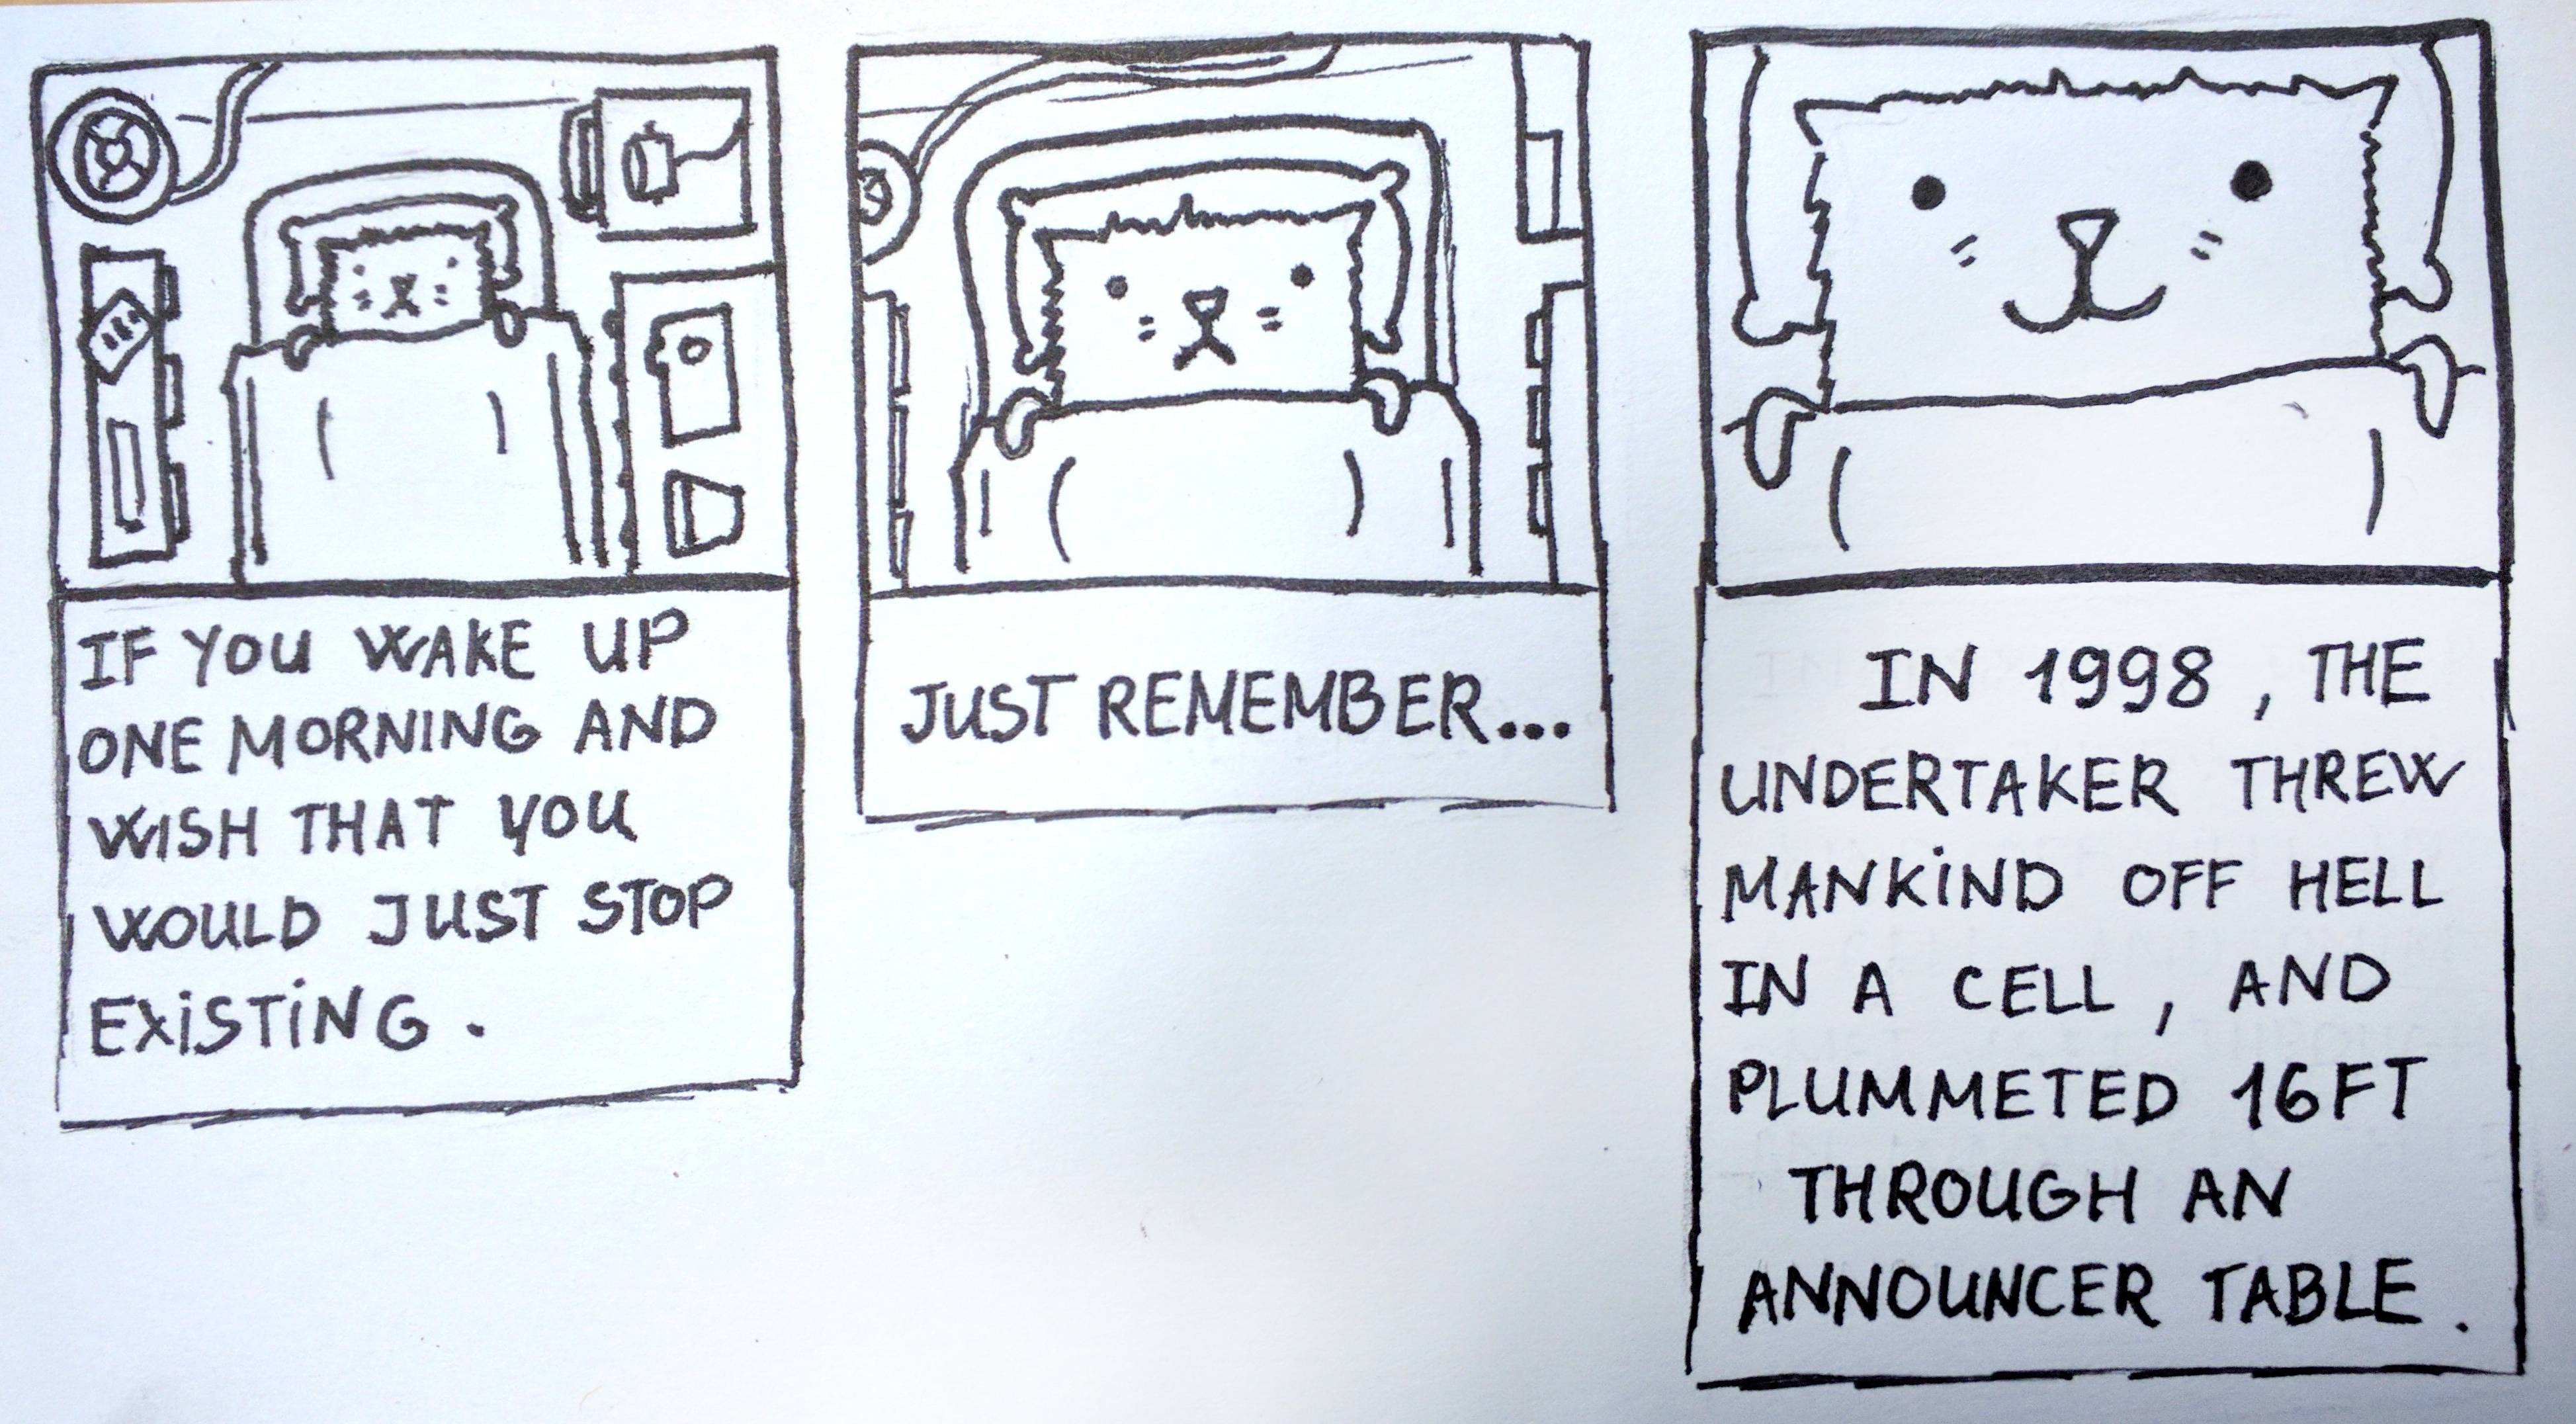 IF YOU WAKE UP
ONE MORNING AND
WISH THAT YOU
WOULD JUST STOP
EXISTING.
JUST REMEMBER...
IN 1998, THE
UNDERTAKER THREW
MANKIND OFF HELL
IN A CELL, AND
PLUMMETED 16FT
THROUGH AN
ANNOUNCER TABLE.